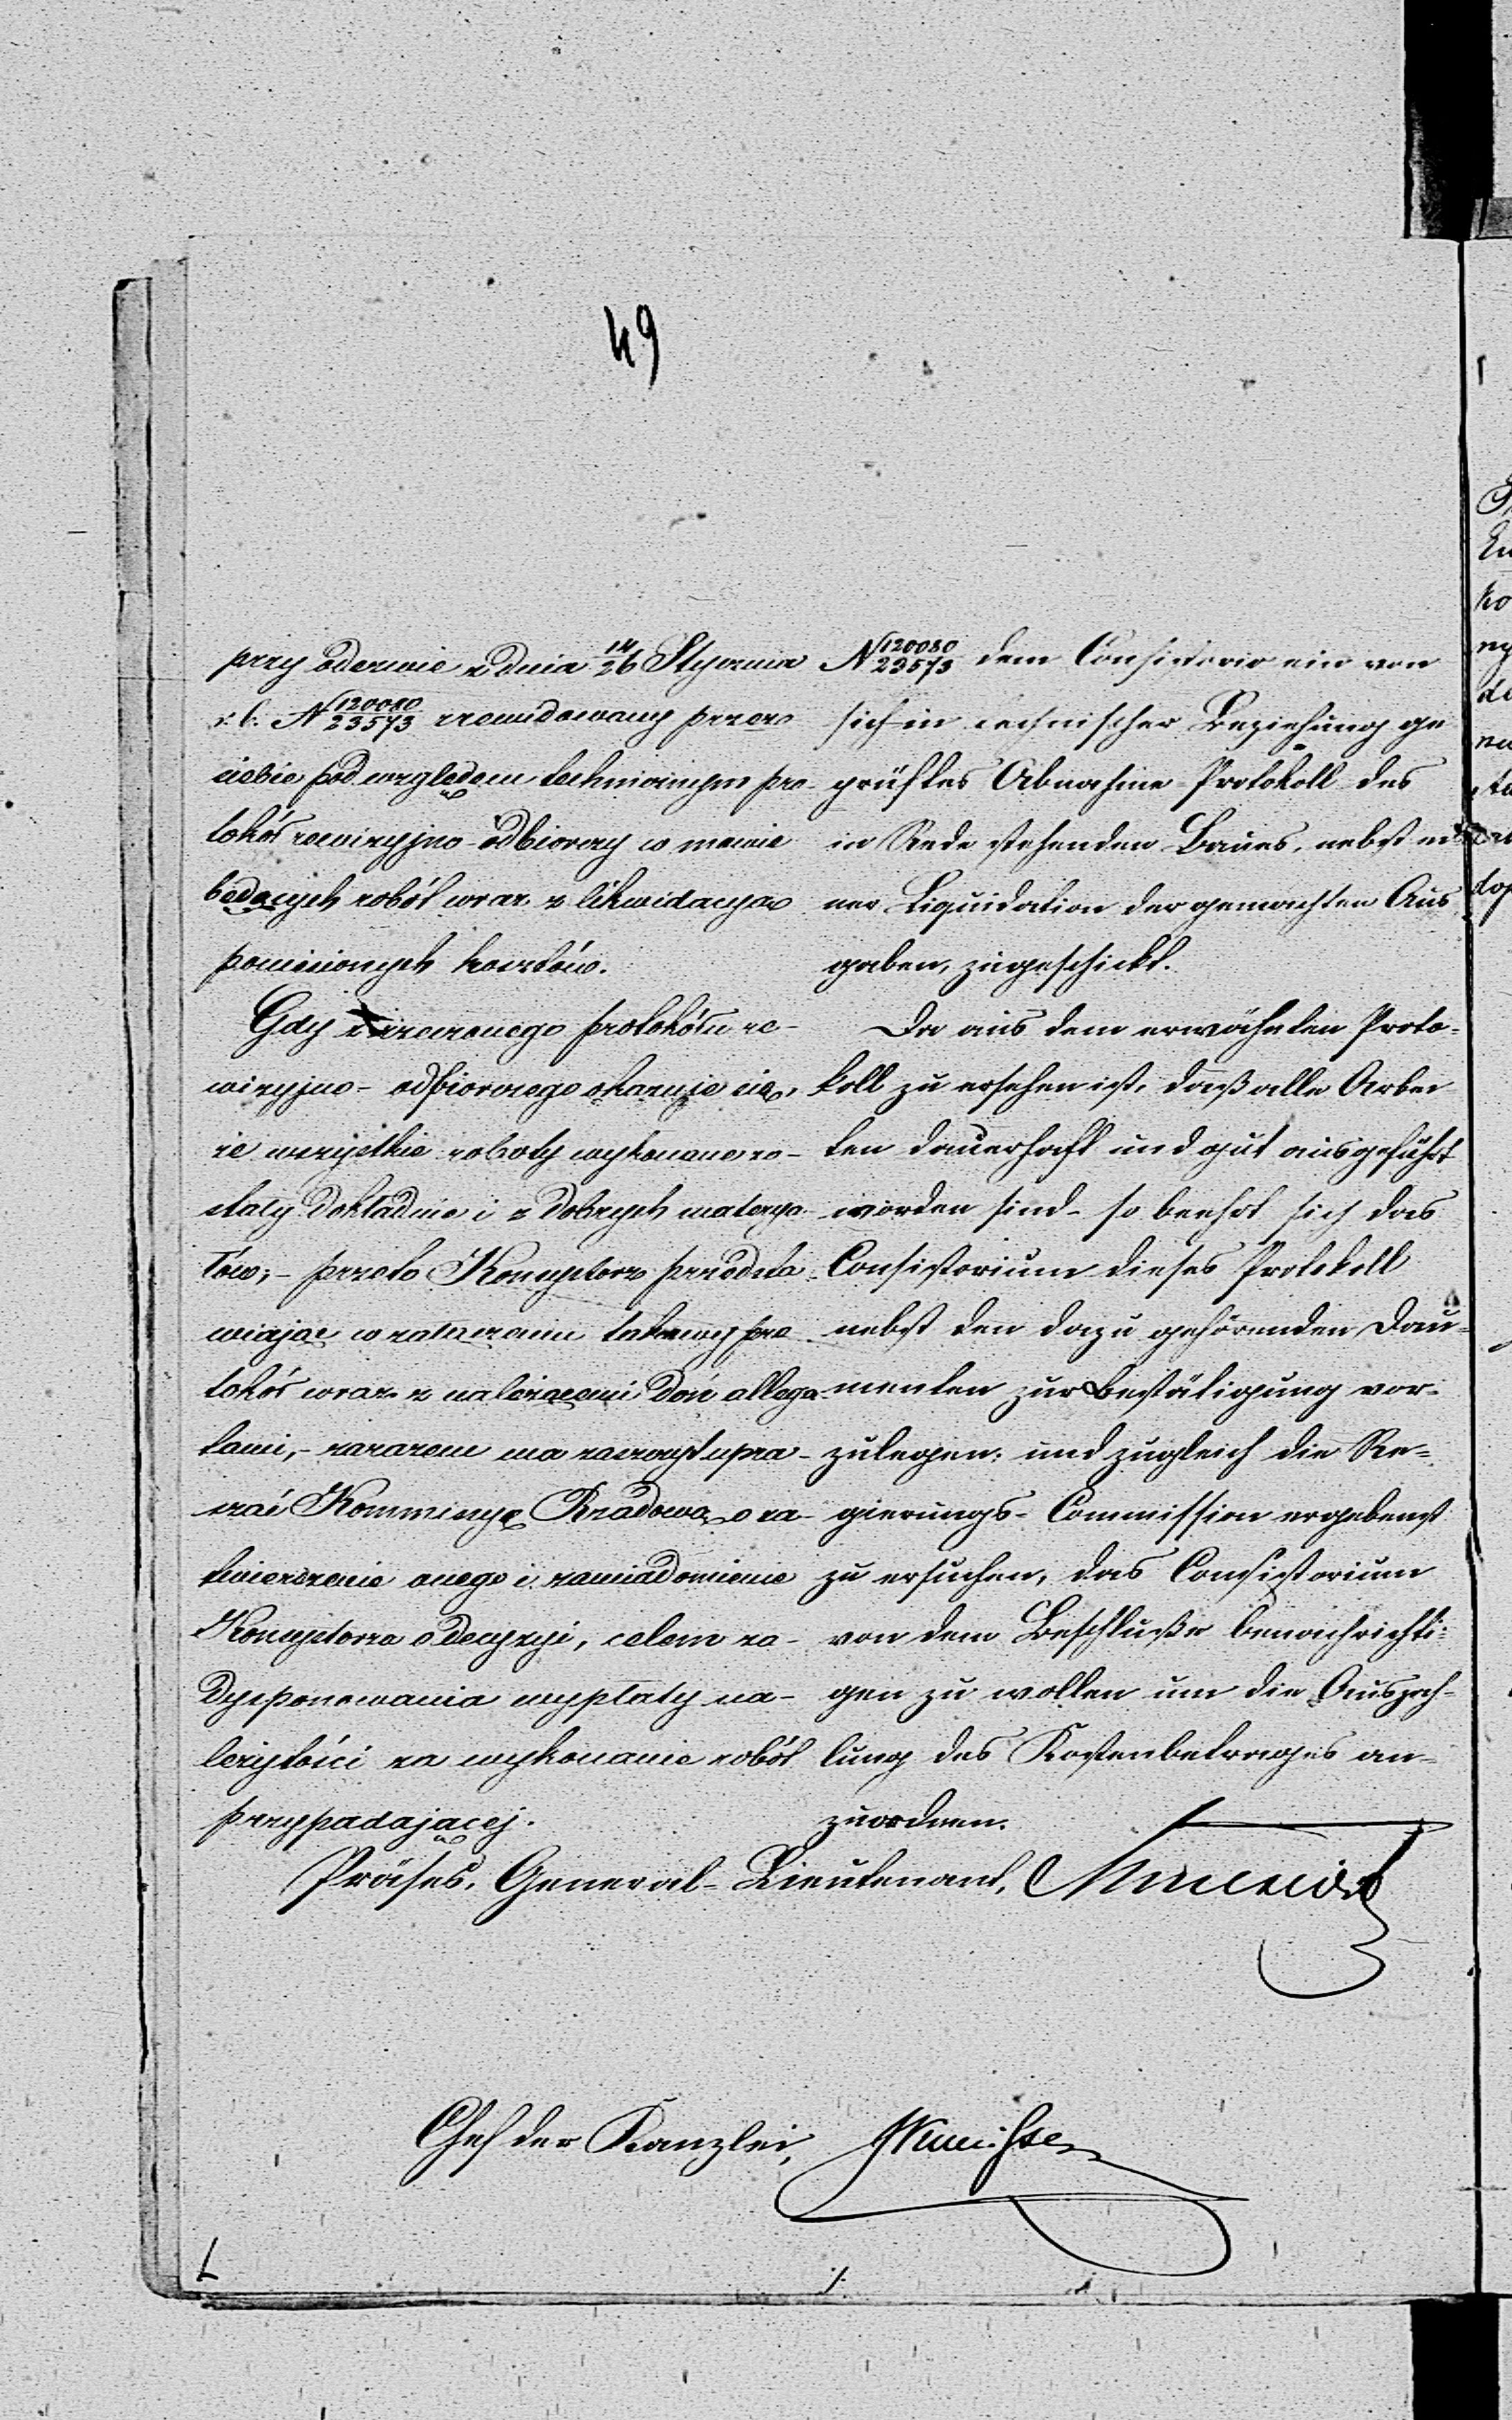 49
przy odezwie z dnia 14/26 Stycznia
r: b: N 120080/23573 zrewidowany przez
siebie pod względem technicznym pro-
tokół rewizyjno-odbiorczy w mowie
będących robót wraz z likwidacyą
poniesionych kosztów.
Gdy z rzeczonego protokółu re-
wizyjno-odbiorczego okazuje się,
że wszystkie roboty wykonane zo-
stały dokładnie i z dobrych materya-
łów; - przeto Konsystorz przedsta-
wiając w załączeniu takowy pro-
tokół wraz z należącemi doń allega-
tami, - zarazem ma zaszczyt upra-
szać Kommissyę Rządową o za-
twierdzenie onego i zawiadomienie
Konsystorza o decyzyi, celem za-
dysponowania wypłaty na-
leżytości za wykonanie robót
przypadającej.
N 120080/23573 dem Consistorio ein von
sich in technischer Beziehung ge-
prüftes Abnahme-Protokoll des
in Rede stehenden Baues, nebst ei-
ner Liquidation der gemachten Aus-
gaben, zugeschickt.
Da aus dem erwähnten Proto-
koll zu ersehen ist, daß alle Arbei-
ten dauerhaft und gut ausgeführt
worden sind - so beehrt sich das
Consistorium dieses Protokoll
nebst den dazu gehörenden
zur Bestätigung vor-
zulegen; und zugleich die Re-
gierungs-Commission ergebenst
zu ersuchen, das Consistorium
von dem Beschluße benachrichti-
gen zu wollen um die Auszah-
lung des Kostenbetrages an-
zuordnen.
Präses, General-Lieutenant,
Chef der Kanzlei,